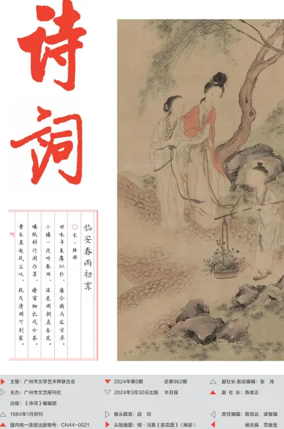 诗词
临安春雨初霁
宋·陆游
世味年来薄似纱，谁令骑马客京华。
小楼一夜听春雨，深巷明朝卖杏花。
矮纸斜行闲作草，晴窗细乳戏分茶。
素衣莫起风尘叹，犹及清明可到家。
主管：广州市文学艺术界联合会
主办：广州市文艺报刊社
出版：《诗词》编辑部
1984年1月创刊
国内统一连续出版物号：CN44-0021
2024年第5期
总第962期
2024年3月30日出版
半月报
报头题写：启功
副社长
社长：陈崇正
责任编辑：